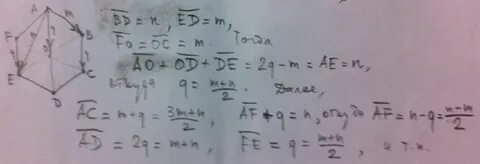 A m B C D E F O q q q q
BD = n, ED = m,
FO = OC = m. Тогда
AO + OD + DE = 2q - m = AE = n,
откуда q = (m+n)/2. Далее,
AC = m + q = (3m+n)/2, AF + q = n, откуда AF = n - q = (n-m)/2
AD = 2q = m+n, FE = q = (m+n)/2, и т.п.